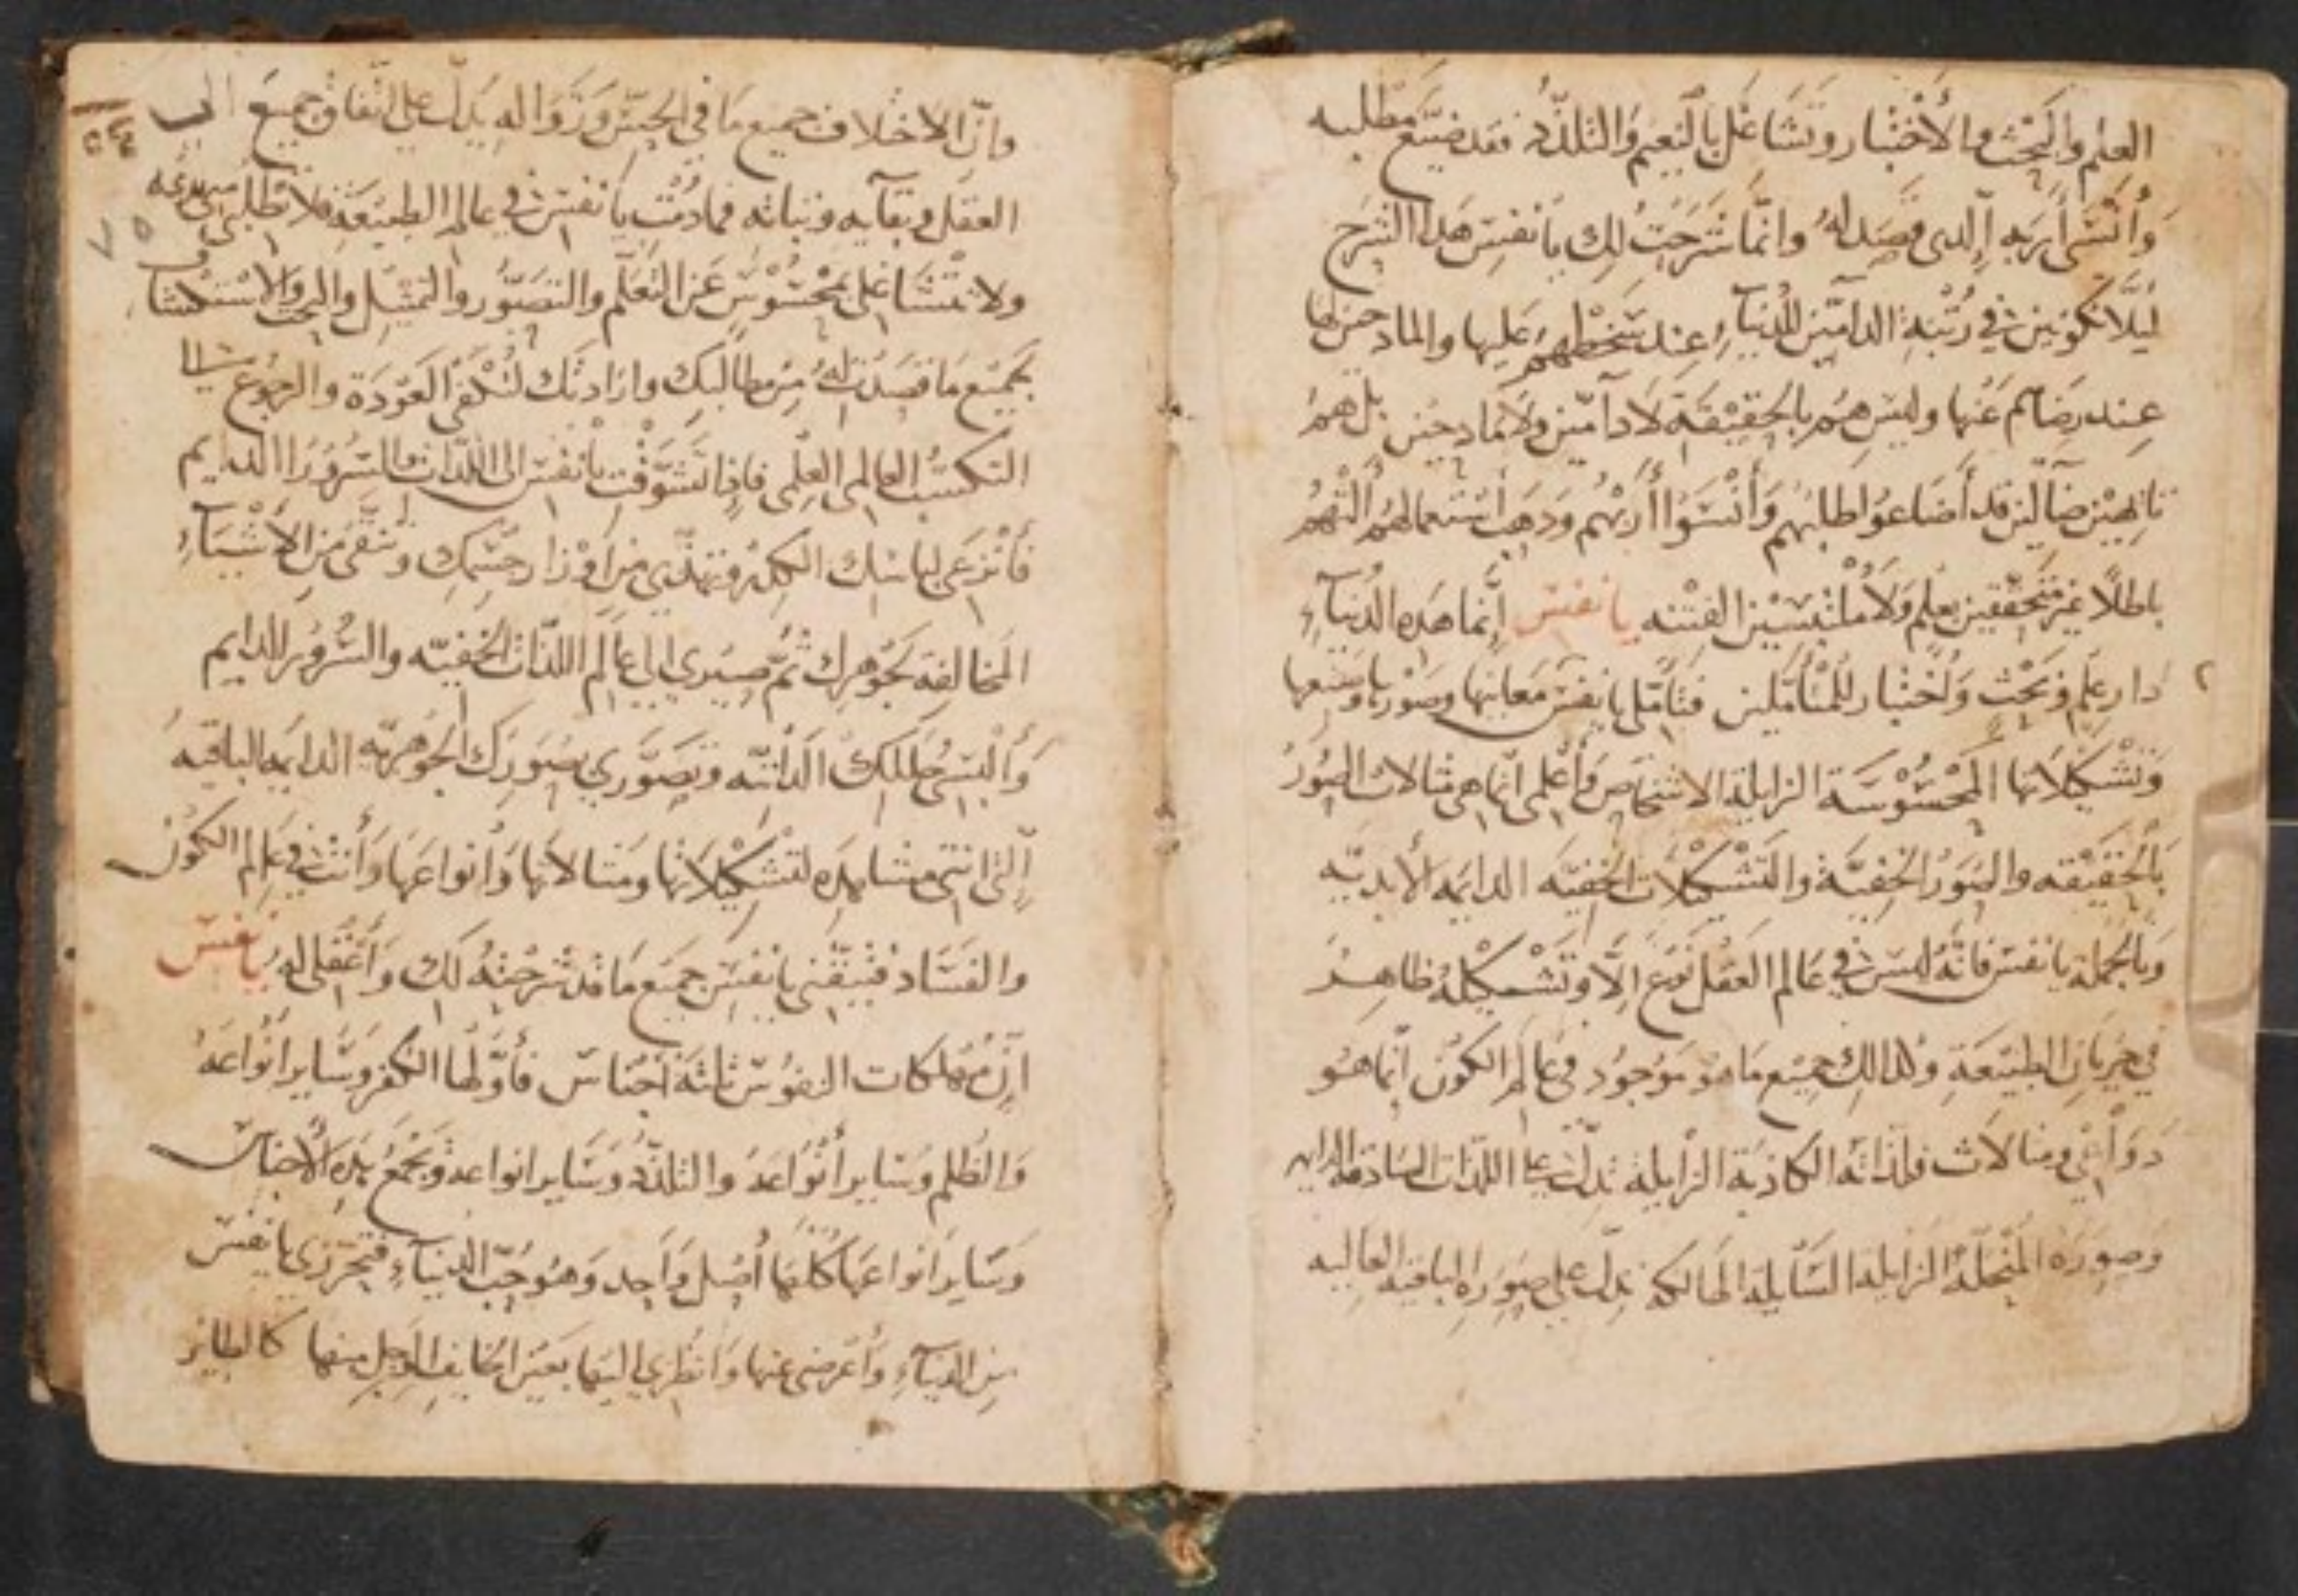 العلم والبحث والأختبار وتشاغل بالنعيم والتلذّذ فقد ضيّع مطلبه
وأنسى أربه الدى قصد له وانما شرحت لك يا نفس هدا الشرح
ليلّا تكونين في رتبة الدامّين للدنيآء عند سخطهم عليها والمادحين لها
عند رضاهم عنها وليس هم بالحقيقة لا دآمّين ولا مادحين بل هم
تايهين ضآلين قد أضاعوا طلبهم وأنسوا أربهم ودهب استعمالهم
باطلًا غير متحققين بعلم ولا ملتبسين الفتنه يا نفس إنما هده الدنيآء
دار علم وبحث وأختبار للمتأملين فتأملي يا نفس معانيها وصورها وصنعها
وتشكيلاتها المحسوسة الزايلة الاشخاص وأعلمى انها هى مثالات الصور
بالحقيقه والصور الخفيّة والتشكيلات الخفيّه الدايمه الأبديّه
وبالجملة يا نفس فانّه ليس في عالم العقل نوع الّا وتشكيله ظاهر
في جريان الطبيعة ولدالك جميع ما هو موجود في عالم الكون انما هو
دواعي ومثالات فلذاته الكاذبة الزايلة تدلّ على اللذات الصادقه الدايمه
وصوره المنحلّة الزايلة السّايلة الهالكه تدلّ على صوره الباقيه العاليه
وانّ الاختلاف جميع ما في الحسّ وزواله يدلّ على اتّفاق جميع الى
العقل وبقآيه وثباته فما دمت يا نفس في عالم الطبيعة فلا تطلبي
ولا تتشاغلى بمحسوس عن التعلّم والتصوّر والتمثيل والبحث والاستكشاف
بجميع ما قصدت له من مطالبك وارادتك لتكفى العودة والرجوع
التكسّب العالمى العلمى فاذا تشوّقت يا نفس الى اللذات والسرور الدايم
فأنزعى لباسك الكدر وتهذّبي من اوزار جسمك وتنقّى من الأشيآء
المخالفة لجوهرك ثم صيري الى عالم اللذات الخفيّه والسّرور الدايم
وألبسى حللك الداتيّه وتصوّري بصورك الجوهريّه الدايمه الباقيه
الّتى انتى مشاهده لتشكيلاتها ومثالاتها وأنواعها وأنت في عالم الكون
والفساد فتيقّنى يا نفس جميع ما قد شرحته لك وأعقلى له يا نفس
انّ مهلكات النفوس ثلثة أجناس فأوّلها الكفر وساير أنواعه
والظلم وساير أنواعه والتلذّذ وساير انواعه ويجمع هده الأجناس
وساير انواعها كلها أصل واحد وهو حبّ الدنيآء فتحرّزي يا نفس
من الدنيآء وأعرضى عنها وانظري اليها بعين الخايف الوجل منها كالطاير